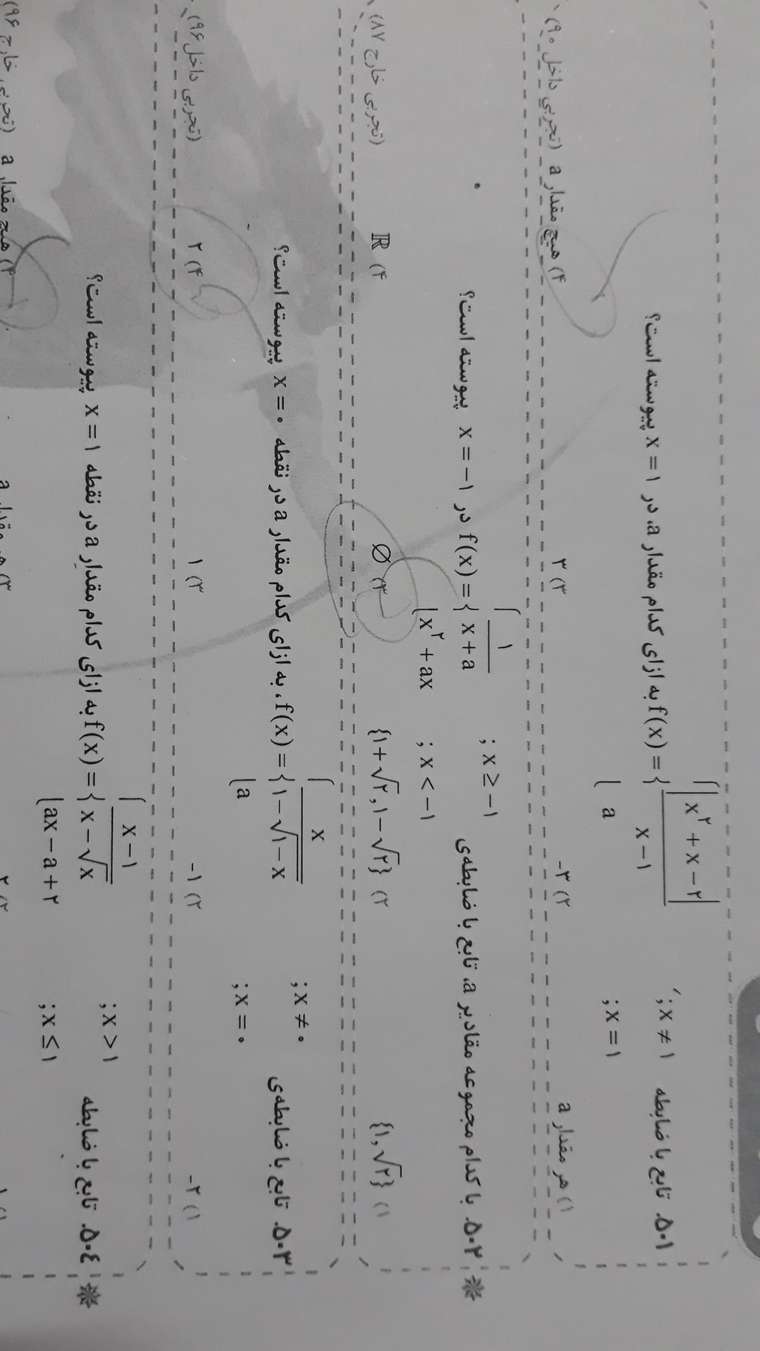 ۵۰۱. تابع با ضابطه f(x) = { |x² + x − ۲| / (x − ۱) ; x ≠ ۱
a ; x = ۱
به ازای کدام مقدار a، در x = ۱ پیوسته است؟
۱) هر مقدار a ۲) −۳ ۳) ۳ ۴) هیچ مقدار a (تجربی داخل ۹۰)
۵۰۲. با کدام مجموعه مقادیر a، تابع با ضابطه‌ی f(x) = { ۱ / (x + a) ; x ≥ −۱
x² + ax ; x < −۱
در x = −۱ پیوسته است؟
۱) {۱, √۲} ۲) {۱ + √۲, ۱ − √۲} ۳) ∅ ۴) ℝ (تجربی خارج ۸۷)
۵۰۳. تابع با ضابطه‌ی f(x) = { x / (۱ − √(۱ − x)) ; x ≠ ۰
a ; x = ۰
، به ازای کدام مقدار a در نقطه x = ۰ پیوسته است؟
۱) −۲ ۲) −۱ ۳) ۱ ۴) ۲ (تجربی داخل ۹۶)
۵۰۴. تابع با ضابطه f(x) = { (x − ۱) / (x − √x) ; x > ۱
ax − a + ۲ ; x ≤ ۱
به ازای کدام مقدار a در نقطه x = ۱ پیوسته است؟
۱) ۱ ۲) ۲ ۳) هر مقدار a ۴) هیچ مقدار a (تجربی خارج ۹۶)